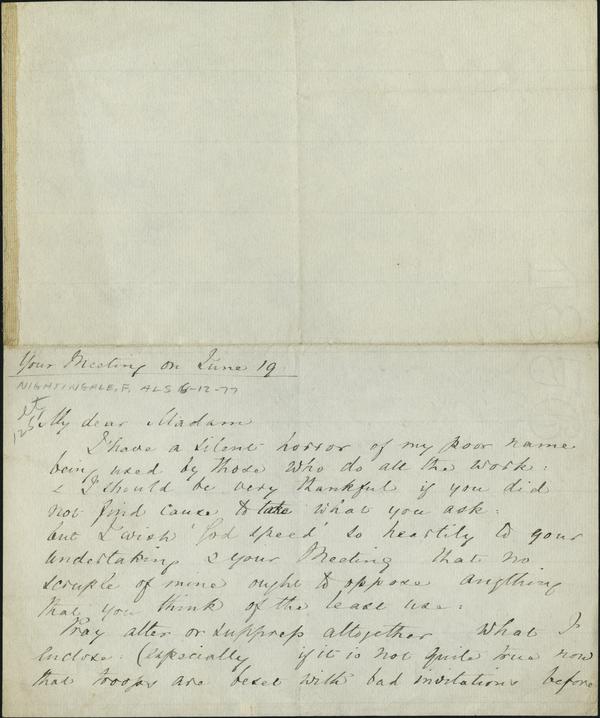 Your Meeting on June 19
NIGHTINGALE, F. ALS 6-12-77
My dear Madam
I have a silent horror of my poor name
being used by those who do all the work:
& I should be very thankful if you did
not find cause to take what you ask:
but I wish 'God speed' so heartily to your
undertaking & your Meeting that no
scruple of mine ought to oppose anything
that you think of the least use:
Pray alter or suppress altogether what I
enclose: (especially if it is not quite true now
that troops are beset with bad invitations before